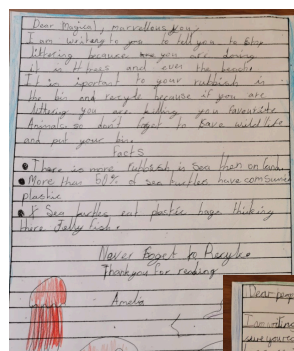 Dear Magical, marvellous you.
I am writeing to you to tell you to stop
littering because you are doing
it in trees and over the beach.
It is iportant to your rubbish in
the bin and recycle because if you are
littering you are killing you favourite
Animals so don't foget to save wild life
and put your bin.
Facts
There is more rubbish in sea then on land.
More than 50% of sea turtles have comsumed
plastic
Sea turtles eat plastic bags thinking
there Jelly fish.
Never foget to Recycle
Thankyou for reading
Amelia
Dear peop
I am writing